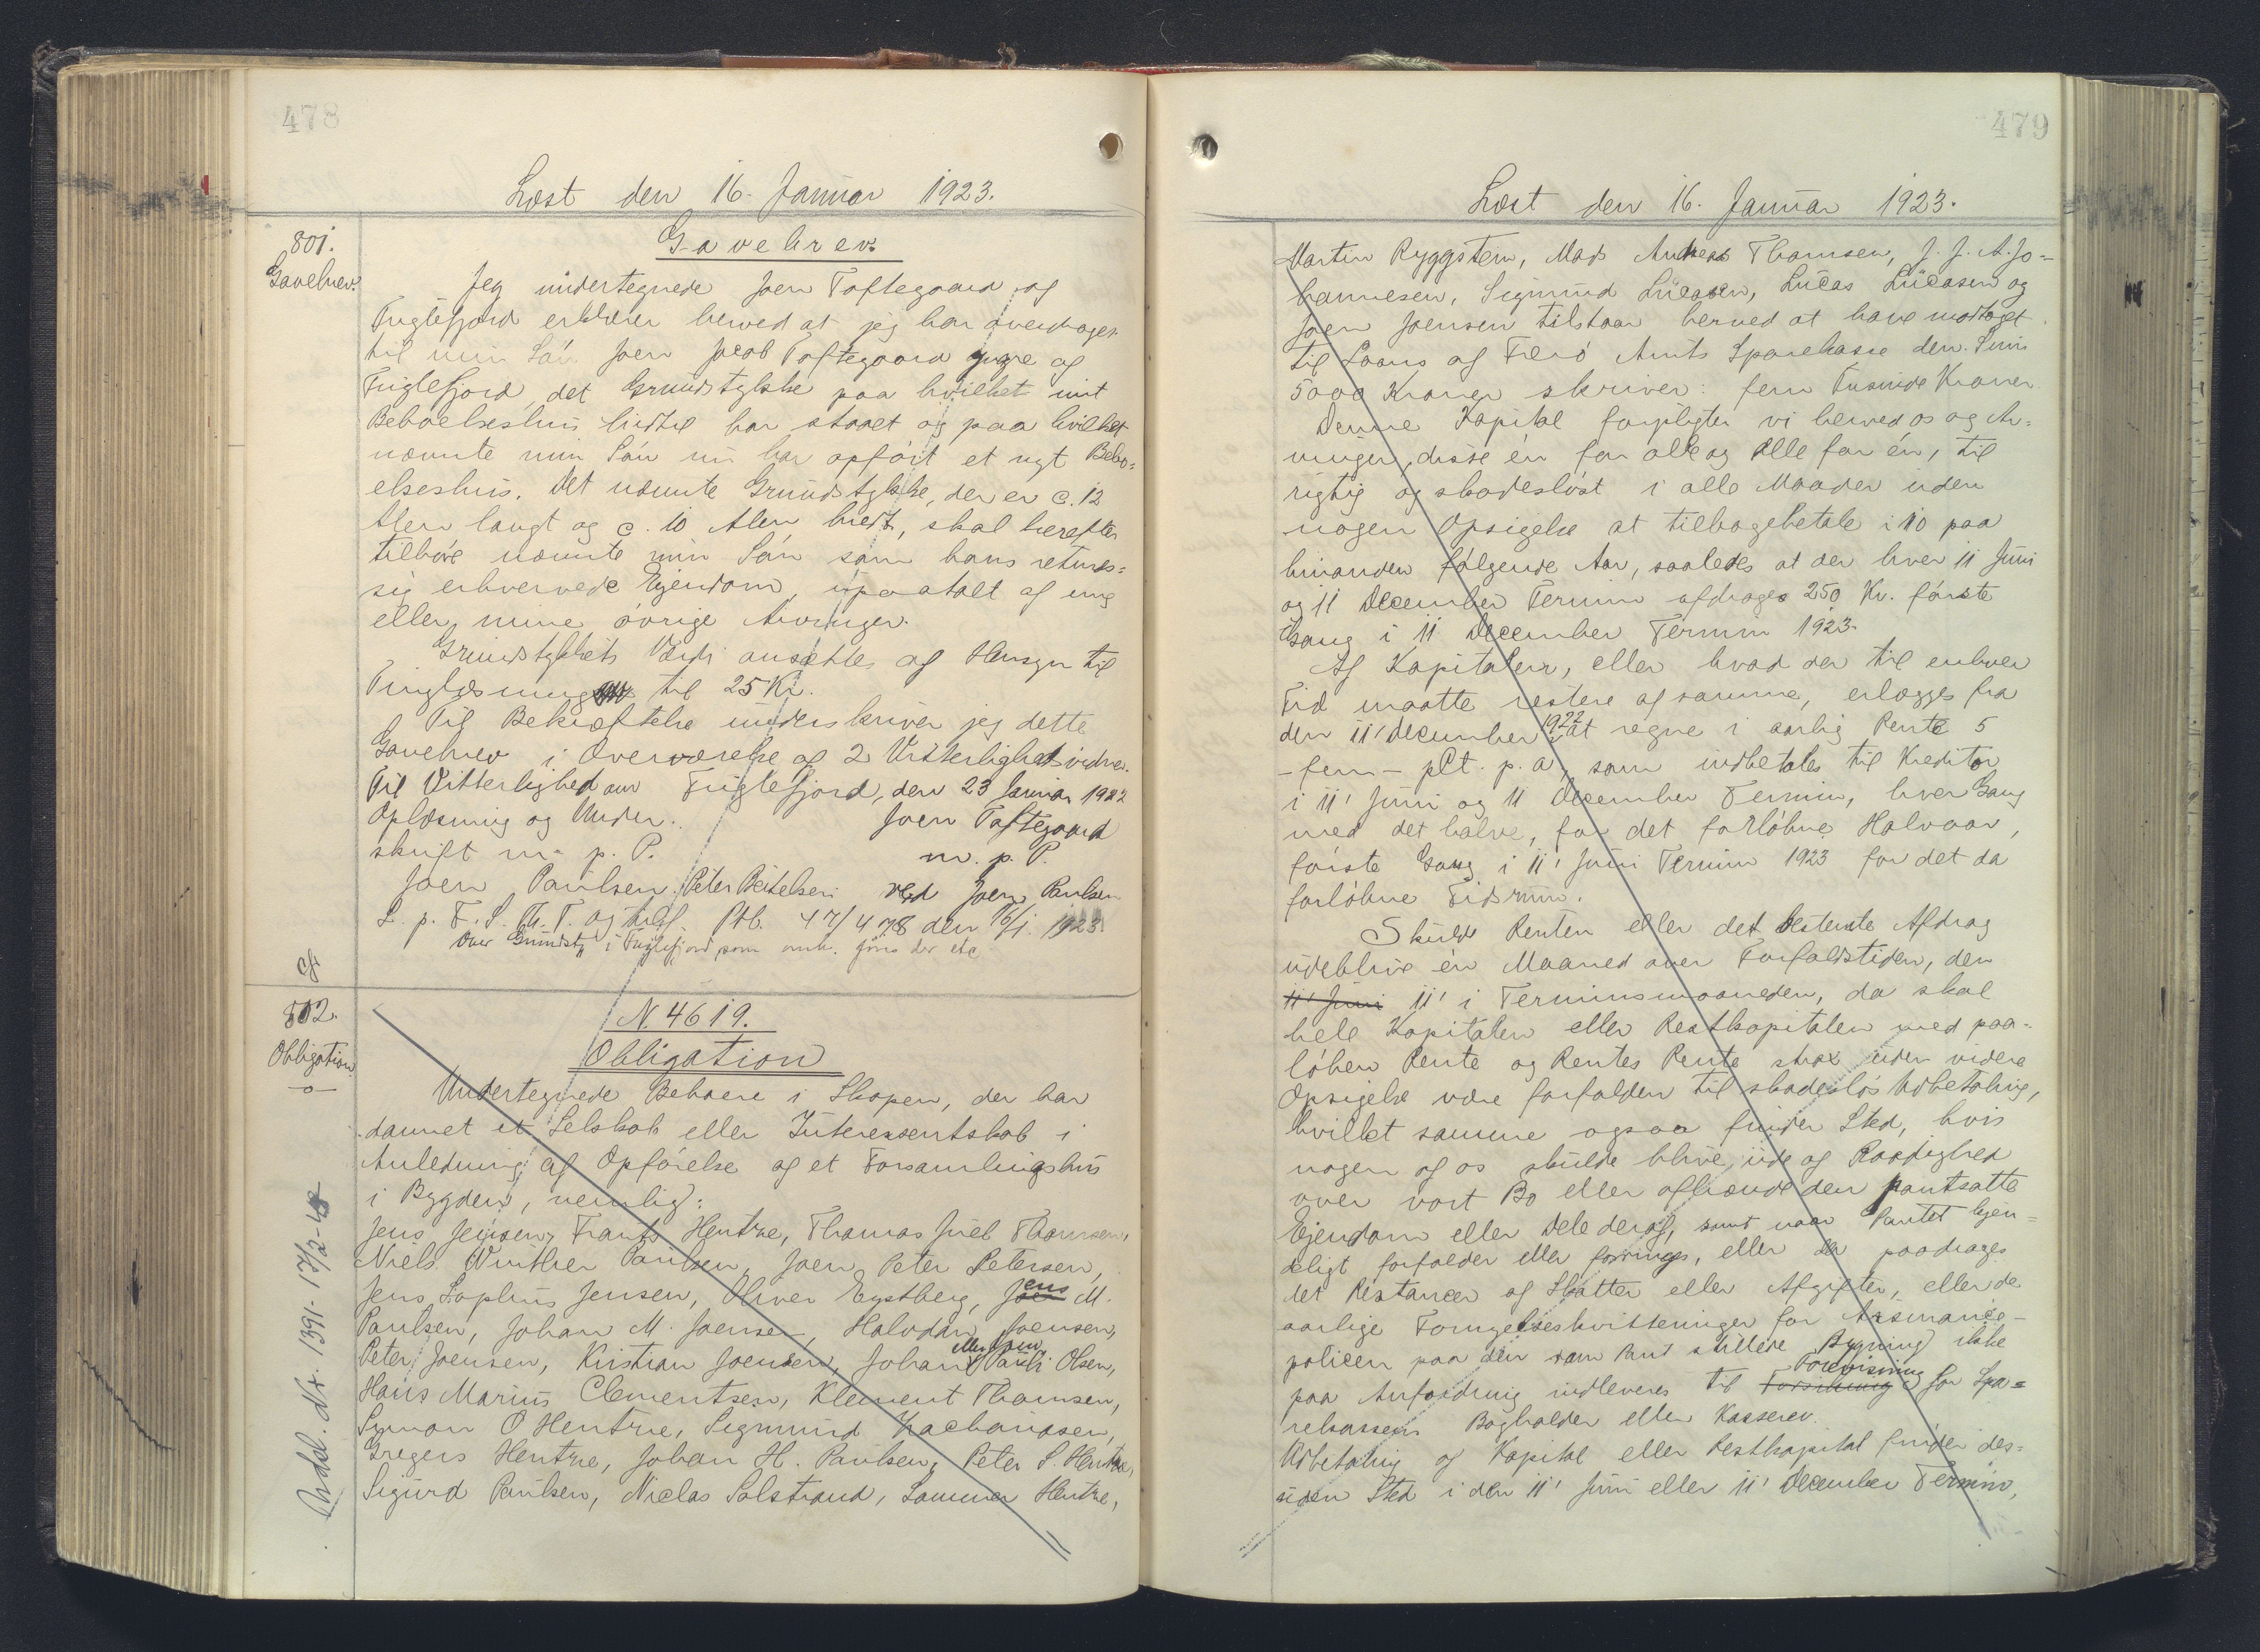 478
Læst den 16. Januar 1923.
801.
Gavebrev.
Gavebrev.
Jeg undertegnede Joen Toftegaard af
Fuglefjord erklærer herved at jeg har overdraget
til min Sön Joen Jacob Toftegaard yngre af
Fuglefjord, det Grundstykke paa hvilket mit
Beboelseshus hidtil har staaet og paa hvilket
nævnte min Sön nu har opfört et nyt Bebo=
elseshus. Det nævnte Grundstykke, der er c. 12
Alen langt og c. 10 Alen bredt, skal herefter
tilhöre nævnte min Sön som hans retmæs=
sig erhvervede Ejendom, upaatalt af mig
eller mine övrige Arvinger.
Grundstykkets Værdi ansættes af Hensyn til
Tinglæsningen til 25 Kr.
Til Bekræftelse underskriver jeg dette
Gavebrev i Overværelse af 2 Vitterlighedsvidner.
Til Vitterlighed om Fuglefjord, den 23 Januar 1922
Oplæsning og Under. Joen Toftegaard
skrift m. p. P. m. p. P.
Joen Paulsen. Peter Beitelsen ved Joen Paulsen
L. p. F. S. Th. T. og tilf. Ptb. 47/478 den 16/1. 1923
Over Grundst. i Fuglefjord, som omh. föres der etc
802.
Obligation
N. 4619.
Obligation
Undertegnede Beboere i Skopen, der har
dannet et Selskab eller Interessentskab i
Anledning af Opförelse af et Forsamlingshus
i Bygden, nemlig:
Jens Jensen, Frants Hentze, Thomas Juel Thomsen,
Niels Winther Paulsen, Joen Peter Petersen,
Jens Sophus Jensen, Oliver Eystberg, Joen Jens M.
Paulsen, Johan M. Joensen, Halvdan Joensen,
Peter Joensen, Kristian Joensen, Johan eller Joen Pauli Olsen,
Hans Marius Clementsen, Klement Thomsen,
Symon O Hentze, Sigmund Zachariasen,
Gregers Hentze, Johan H. Paulsen, Peter S. Hentze,
Sigurd Paulsen, Niclas Solstrand, Sommer Hentze,
Indbl. Nr. 1391- 17/2-48
479
Læst den 16. Januar 1923.
Martin Ryggstein, Mads Andreas Thomsen, J. J. A. Jo=
hannesen, Sigmund Lücasen, Lücas Lücasen og
Joen Joensen tilstaar herved at have modtaget
til Laans af Færö Amts Sparekasse den Sum
5000 Kroner skriver: fem Tusinde Kroner.
Denne Kapital forpligter vi herved os og Ar=
vinger, disse én for alle og alle for én, til
rigtig og skadeslöst i alle Maader uden
nogen Opsigelse at tilbagebetale i 10 paa
hinanden fölgende Aar, saaledes at der hver 11 Juni
og 11 December Termin afdrages 250 Kr. förste
Gang i 11 December Termin 1923.
Af Kapitalen, eller hvad der til enhver
Tid maatte restere af samme, erlægges fra
den 11' December 1922 at regne i aarlig Rente 5
- fem - pCt. p. a, som indbetales til Kreditor
i 11' Juni og 11 December Termin, hver Gang
med det halve, for det forlöbne Halvaar,
förste Gang i 11' Juni Termin 1923 for det da
forlöbne Tidsrum.
Skulde Renten eller det bestemte Afdrag
udeblive én Maaned over Forfaldstiden, den
11' Juni 11' i Terminsmaaneden, da skal
hele Kapitalen eller Restkapitalen med paa=
löben Rente og Rentes Rente strax uden videre
Opsigelse være forfalden til skadeslös Udbetaling,
hvilket samme ogsaa finder Sted, hvis
nogen af os skulde blive ude af Raadighed
over vort Bo eller afhænde den pantsatte
Ejendom eller Dele deraf, samt naar Pantet kjen=
deligt forfalder eller forringes, eller der paadrages
det Restancer af Skatter eller Afgifter, eller de
aarlige Fornyelseskvitteringer for Assurance-
policen paa den som Pant stillede Bygning ikke
paa Anfordring indleveres til Forsikring Forevisning for Spa=
rekassens Bogholder eller Kasserer.
Udbetaling af Kapital eller Restkapital finder des=
uden Sted i den 11' Juni eller 11' December Termin,